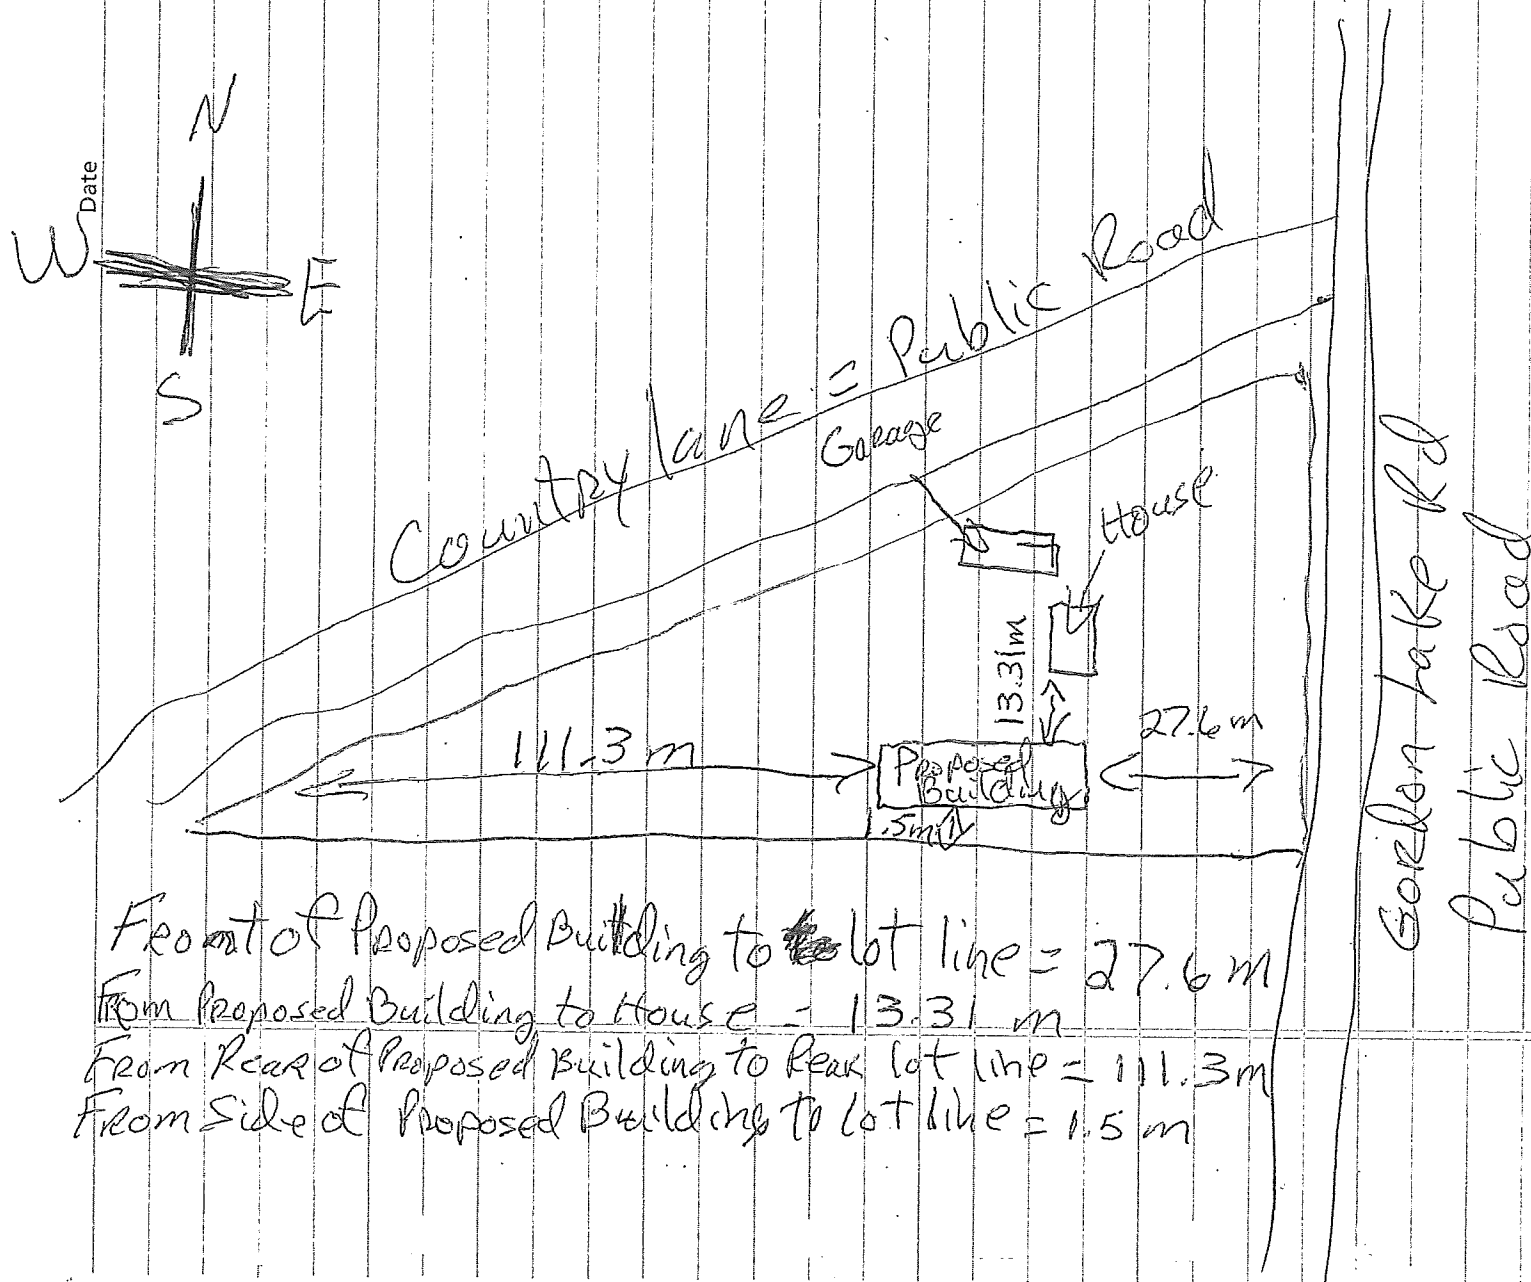 N
Date
W
E
S
Country lane = Public Road
Garage
House
13.31m
27.6 m
111.3 m
Proposed
Building
.5m
Gordon Lake Rd
Public Road
Front of Proposed Building to lot line = 27.6 m
From Proposed Building to House = 13.31 m
From Rear of Proposed Building to Rear lot line = 111.3m
From Side of Proposed Building to lot line = 1.5 m